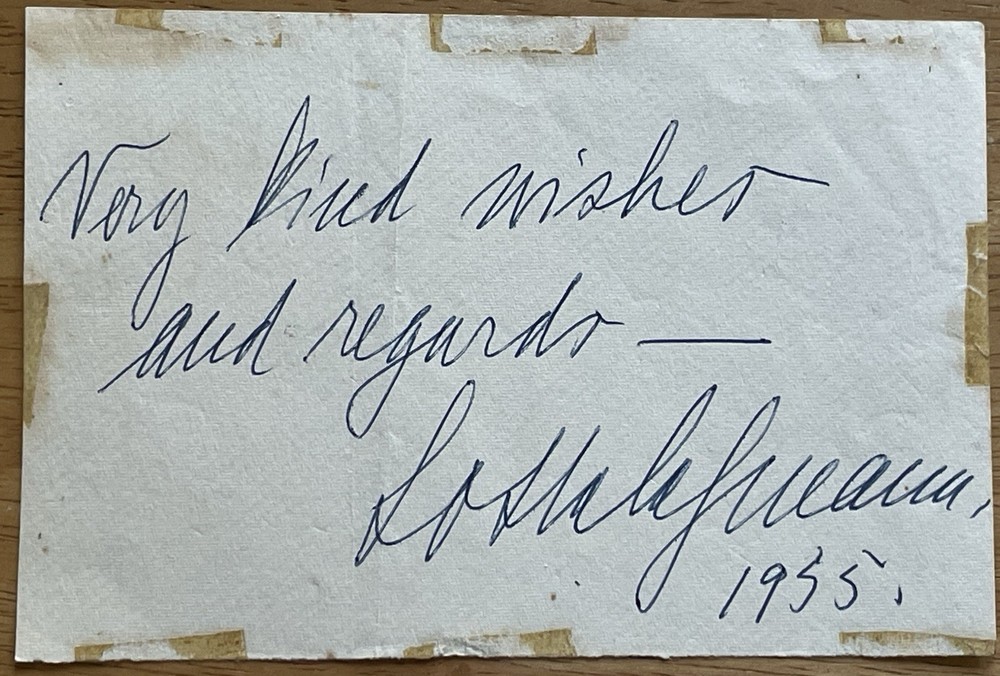 Very kind wishes
and regards —
Lotte Lehmann,
1955.